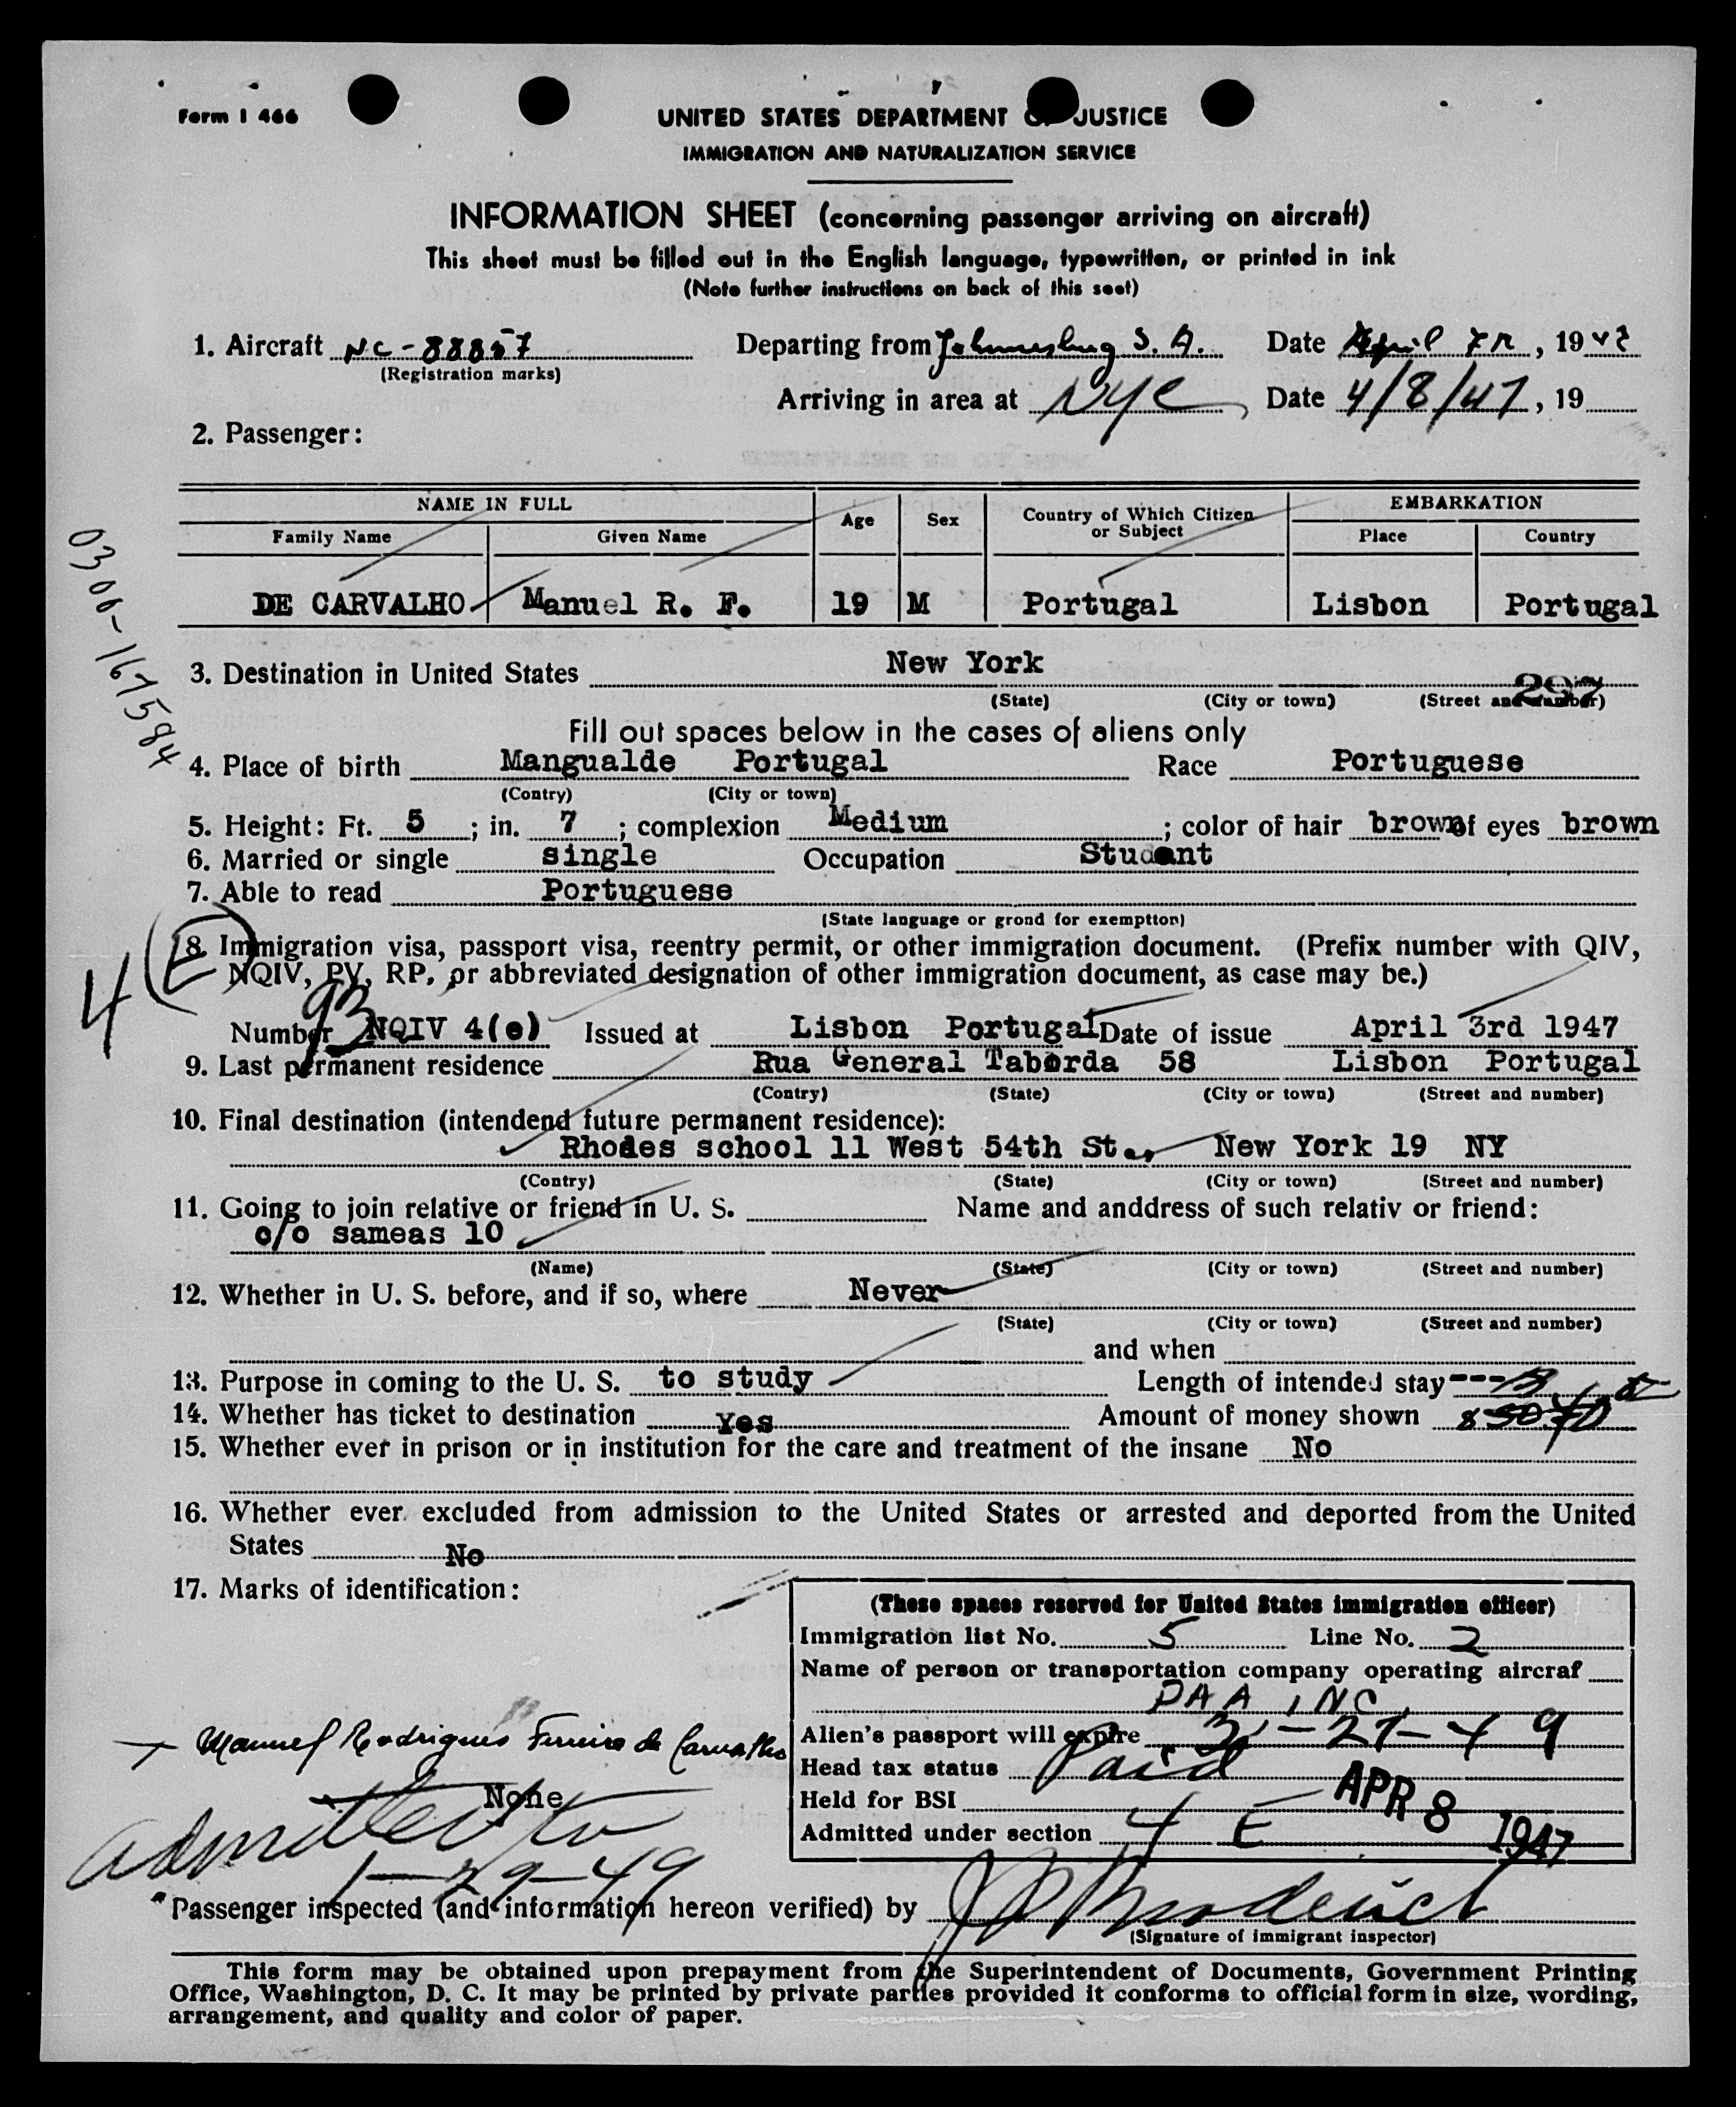 Form I 466
UNITED STATES DEPARTMENT OF JUSTICE
IMMIGRATION AND NATURALIZATION SERVICE
INFORMATION SHEET (concerning passenger arriving on aircraft)
This sheet must be filled out in the English language, typewritten, or printed in ink
(Note further instructions on back of this seet)
1. Aircraft NC-88857 Departing from Johannesburg S. A. Date April 7th, 1947
(Registration marks)
Arriving in area at NYC Date 4/8/47, 19
2. Passenger:
NAME IN FULL Age Sex Country of Which Citizen or Subject EMBARKATION
Family Name Given Name Place Country
DE CARVALHO Manuel R. F. 19 M Portugal Lisbon Portugal
0306-167584
3. Destination in United States New York
(State) (City or town) (Street and number)
297
Fill out spaces below in the cases of aliens only
4. Place of birth Mangualde Portugal Race Portuguese
(Contry) (City or town)
5. Height: Ft. 5; in. 7; complexion Medium; color of hair brown of eyes brown
6. Married or single single Occupation Student
7. Able to read Portuguese
(State language or grond for exemptton)
4(E)
8. Immigration visa, passport visa, reentry permit, or other immigration document. (Prefix number with QIV,
NQIV, PV, RP, or abbreviated designation of other immigration document, as case may be.)
Number 93 NQIV 4(e) Issued at Lisbon Portugal Date of issue April 3rd 1947
9. Last permanent residence Rua General Taborda 58 Lisbon Portugal
(Contry) (State) (City or town) (Street and number)
10. Final destination (intendend future permanent residence):
Rhodes school 11 West 54th St., New York 19 NY
(Contry) (State) (City or town) (Street and number)
11. Going to join relative or friend in U. S. Name and anddress of such relativ or friend:
c/o sameas 10
(Name) (State) (City or town) (Street and number)
12. Whether in U. S. before, and if so, where Never
(State) (City or town) (Street and number)
and when
13. Purpose in coming to the U. S. to study Length of intended stay ---
14. Whether has ticket to destination Yes Amount of money shown
15. Whether ever in prison or in institution for the care and treatment of the insane No
16. Whether ever excluded from admission to the United States or arrested and deported from the United
States No
17. Marks of identification:
(These spaces reserved for United States immigration officer)
Immigration list No. 5 Line No. 2
Name of person or transportation company operating aircraf
PAA INC.
Manuel Rodrigues Ferreira de Carvalho
Alien's passport will expire 3-27-49
Head tax status Paid
None
Held for BSI
APR 8 1947
Admitted under section 4 E
admitted to
1-29-49
Passenger inspected (and information hereon verified) by J P Broderick
(Signature of immigrant inspector)
This form may be obtained upon prepayment from the Superintendent of Documents, Government Printing
Office, Washington, D. C. It may be printed by private parties provided it conforms to official form in size, wording,
arrangement, and quality and color of paper.